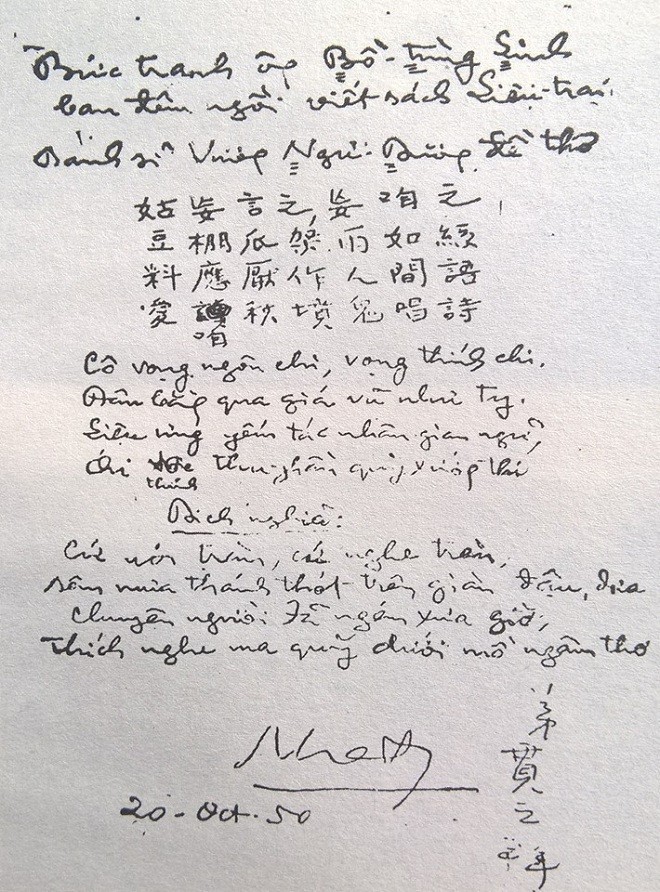 Bức tranh ông Bồ-Tùng Linh
ban đêm ngồi viết sách Liêu-trai
Danh sĩ Vương Ngư-Dương đề thơ
姑妄言之,妄咱之,
豆棚瓜架雨如經
料應厭作人間語
愛咱秋墳鬼唱詩
Cô vọng ngôn chi, vọng thính chi.
Đậu bằng qua giá vũ như ty.
Liệu ưng yếm tác nhân gian ngữ,
Ái thính thu phần quỷ xướng thi
Dịch nghĩa:
Cứ nói tràn, cứ nghe tràn,
sớm mưa thánh thót trên giàn đậu, dưa
chuyện người đã ngán xưa giờ,
Thích nghe ma quỷ dưới mồ ngâm thơ
20-Oct-50
弟貫之